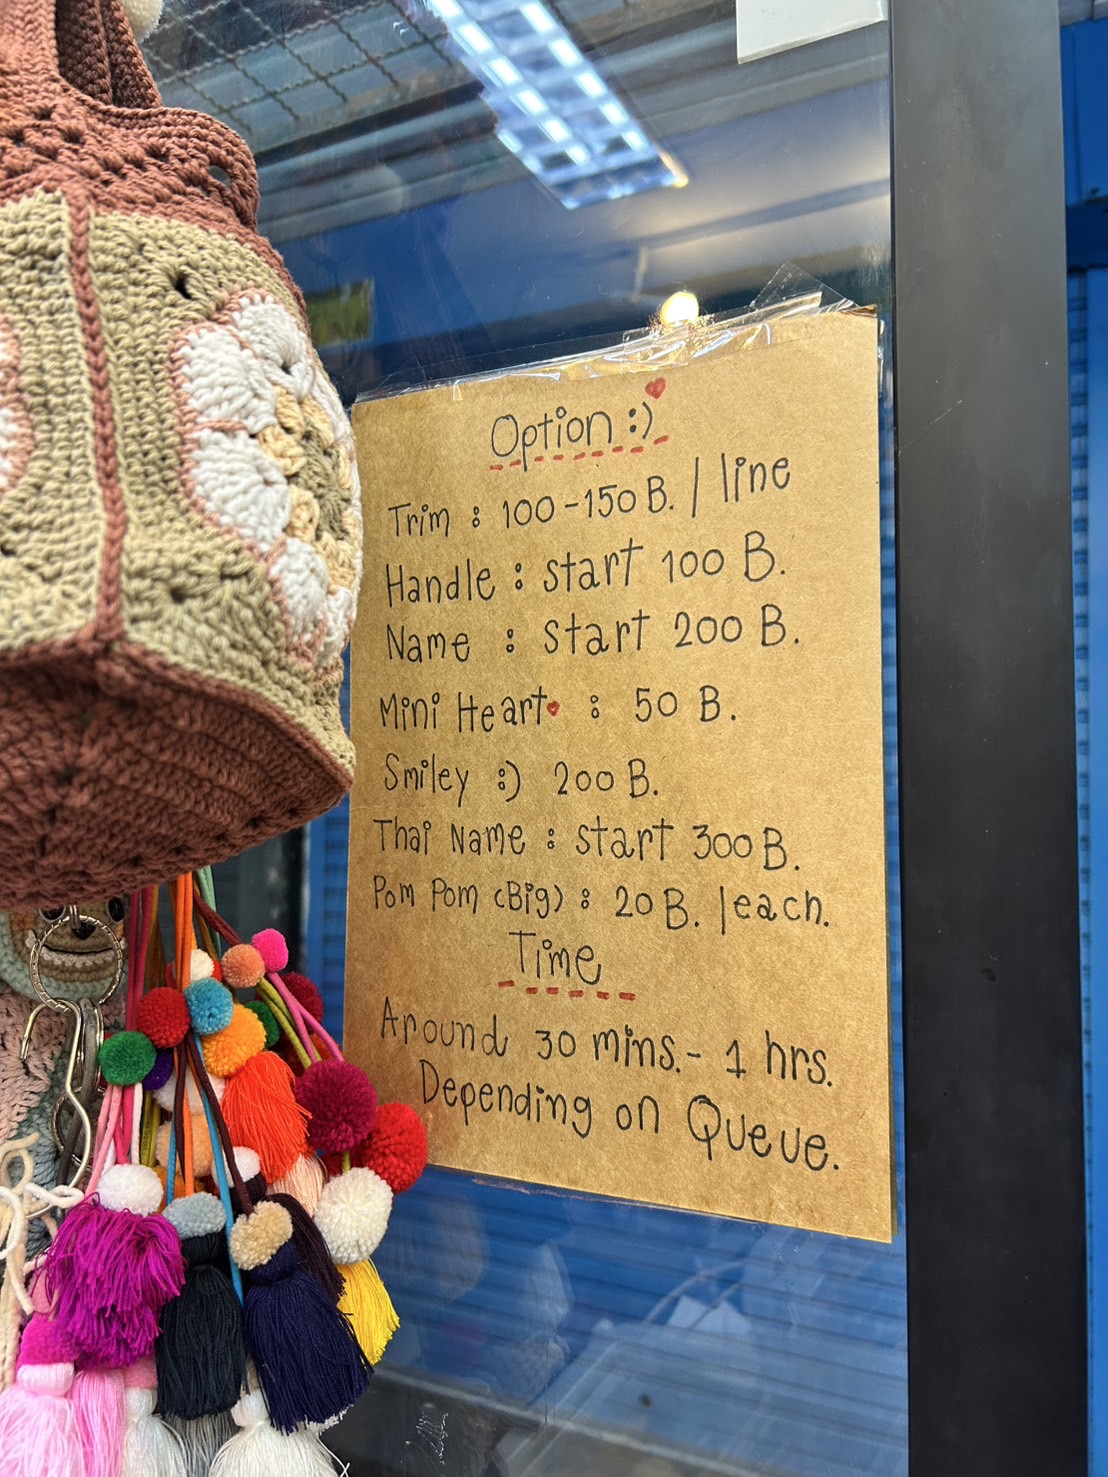 Option :)
Trim : 100-150 B. / line
Handle : start 100 B.
Name : start 200 B.
Mini Heart : 50 B.
Smiley :) 200 B.
Thai Name : start 300 B.
Pom Pom (Big) : 20 B. /each.
Time
Around 30 mins.- 1 hrs.
Depending on Queue.